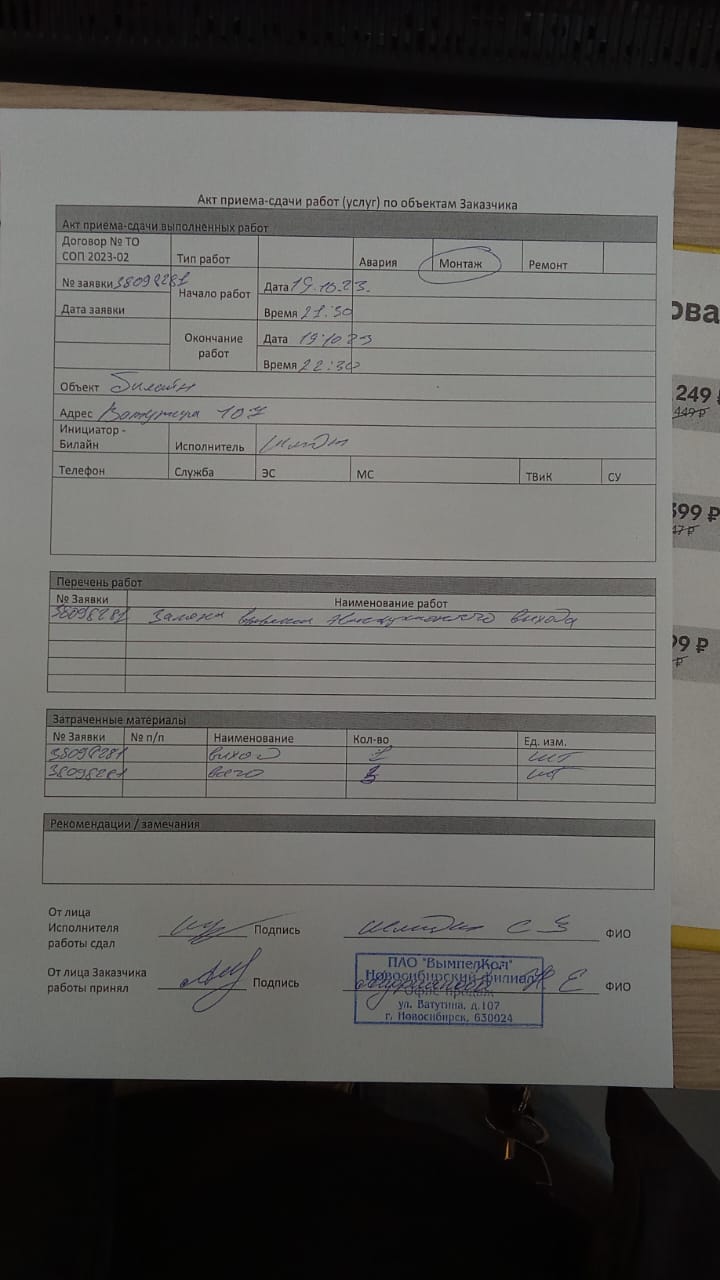 Акт приема-сдачи работ (услуг) по объектам Заказчика
Акт приема-сдачи выполненных работ
Договор № ТО СОП 2023-02 Тип работ Авария Монтаж Ремонт
№ заявки 38098281 Начало работ Дата 19.10.23.
Дата заявки Время 21:30
Окончание работ Дата 19.10.23
Время 22:30
Объект Билайн
Адрес Ватутина 107
Инициатор - Билайн Исполнитель
Телефон Служба ЭС МС ТВиК СУ
Перечень работ
№ Заявки Наименование работ
38098281 Замена выхода
Затраченные материалы
№ Заявки № п/п Наименование Кол-во Ед. изм.
38098281 выход шт
38098281 шт
Рекомендации / замечания
От лица
Исполнителя
работы сдал Подпись С ФИО
От лица Заказчика
работы принял Подпись Е ФИО
ПАО "ВымпелКом"
Новосибирский филиал
Офис продаж
ул. Ватутина, д.107
г. Новосибирск, 630024
ова
249
449 ₽
399 ₽
47 ₽
99 ₽
₽